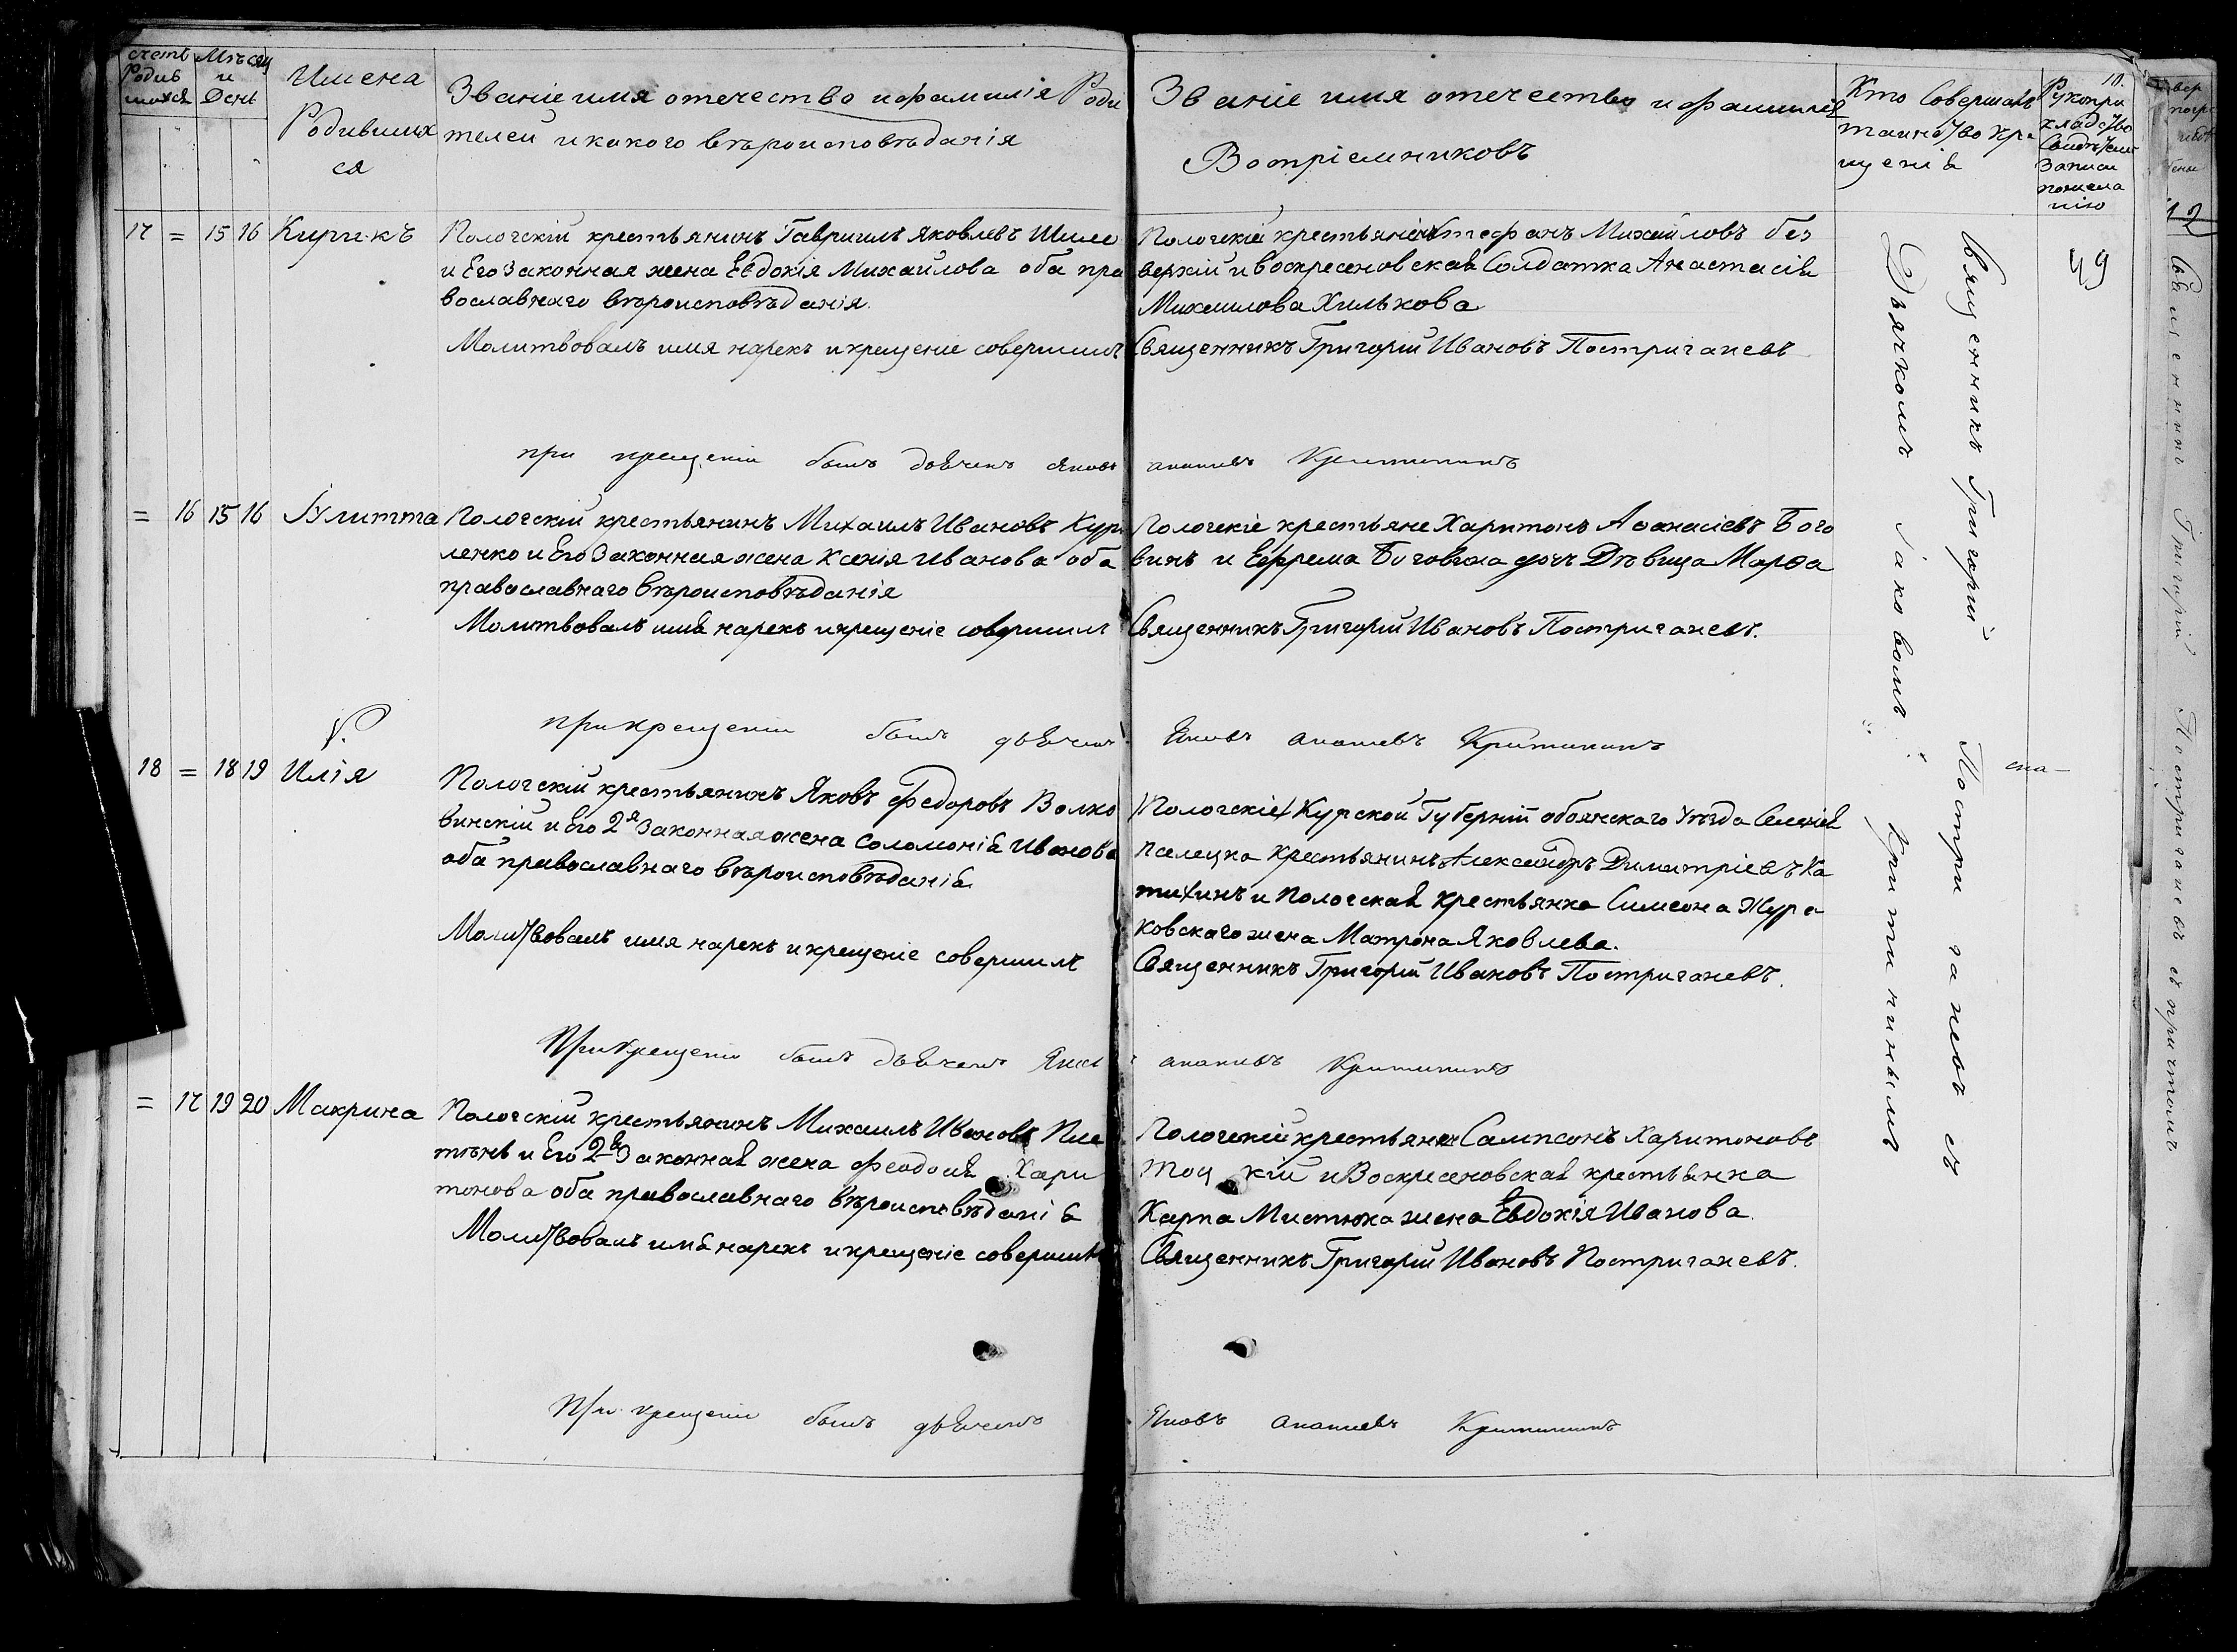 счетъ Родив шихся
Мѣсяц и День
Имена Родивших ся
Званіе имя отечество и фамилія Роди
телей и какого вѣроисповѣданія
Званіе имя отечество и фамилія
Вотріемниковъ
Кто Совершалъ
таинство кре
щенія
10.
Рукопри
кладство
Свидѣтелей
Записи
по желанію
17 = 15 16 Кирикъ
Пологскій крестьянинъ Гавриилъ Яковлевъ Шиле
и Его Законная жена Евдокія Михаилова оба пра
вославнаго вѣроисповѣданія
Молитвовалъ имя нарекъ и крещеніе совершилъ
при крещеніи былъ дьячекъ Яковъ
Пологскіе крестьянинъ Стефанъ Михаиловъ без
верхій и воскресеновская Солдатка Анастасія
Михаилова Хилькова
Священникъ Григорій Ивановъ Постриганевъ
ананьевъ Критининъ
49
= 16 15 16 Іулитта
Пологскій крестьянинъ Михаилъ Ивановъ Кури
ленко и Его Законная жена Ксенія Иванова оба
православнаго вѣроисповѣданія
Молитвовалъ имя нарекъ и крещеніе совершилъ
при крещеніи былъ дьячекъ
Пологскіе крестьяне Харитонъ Аѳанасіевъ Бого
винъ и Ефрема Боговина дочь Дѣвица Марѳа
Священникъ Григорій Ивановъ Постриганевъ.
Яковъ ананьевъ Критининъ
18 = 18 19 Илія
Пологскій крестьянинъ Яковъ Федоровъ Волко
винскій и Его 2я Законная жена Соломонія Иванова
оба православнаго вѣроисповѣданія
Молитвовалъ имя нарекъ и крещеніе совершилъ
При крещеніи былъ дьячекъ Яковъ
Пологскіе Курской Губерніи обоянскаго Уѣзда Селенія
пселецка Крестьянинъ Александръ Димитріевъ Ка
тихинъ и Пологская крестьянка Симеона Жура
ковскаго жена Матрона Яковлева.
Священникъ Григорій Ивановъ Постриганевъ.
ананьевъ Критининъ
= 17 19 20 Макрина
Пологскій крестьянинъ Михаилъ Ивановъ Пле
тѣнь и Его 2я Законная жена Феодосія Хари
тонова оба православнаго вѣроисповѣданія
Молитвовалъ имя нарекъ и крещеніе совершилъ
При крещеніи былъ дьячекъ
Пологскій крестьянинъ Сампсонъ Харитоновъ
кій и Воскресеновская крестьянка
Карпа Мистюка жена Евдокія Иванова.
Священникъ Григорій Ивановъ Постриганевъ.
Яковъ ананьевъ Критининъ
Священникъ Григорій Постриганевъ съ
Дьячкомъ Іаковомъ Критининымъ
12
Священникъ Григорій Постриганевъ съ причтомъ